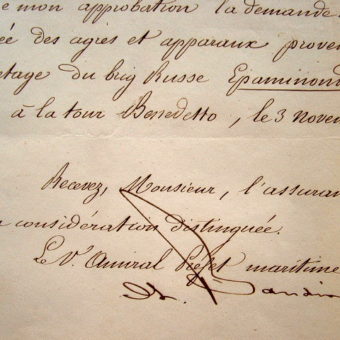 e mon approbation la demande
ée des agrès et apparaux prove
tage du brig Russe Epaminond
à la tour Benedetto, le 3 Novem
Recevez, Monsieur, l'assuran
considération distinguée.
Le V. Amiral Préfet maritime